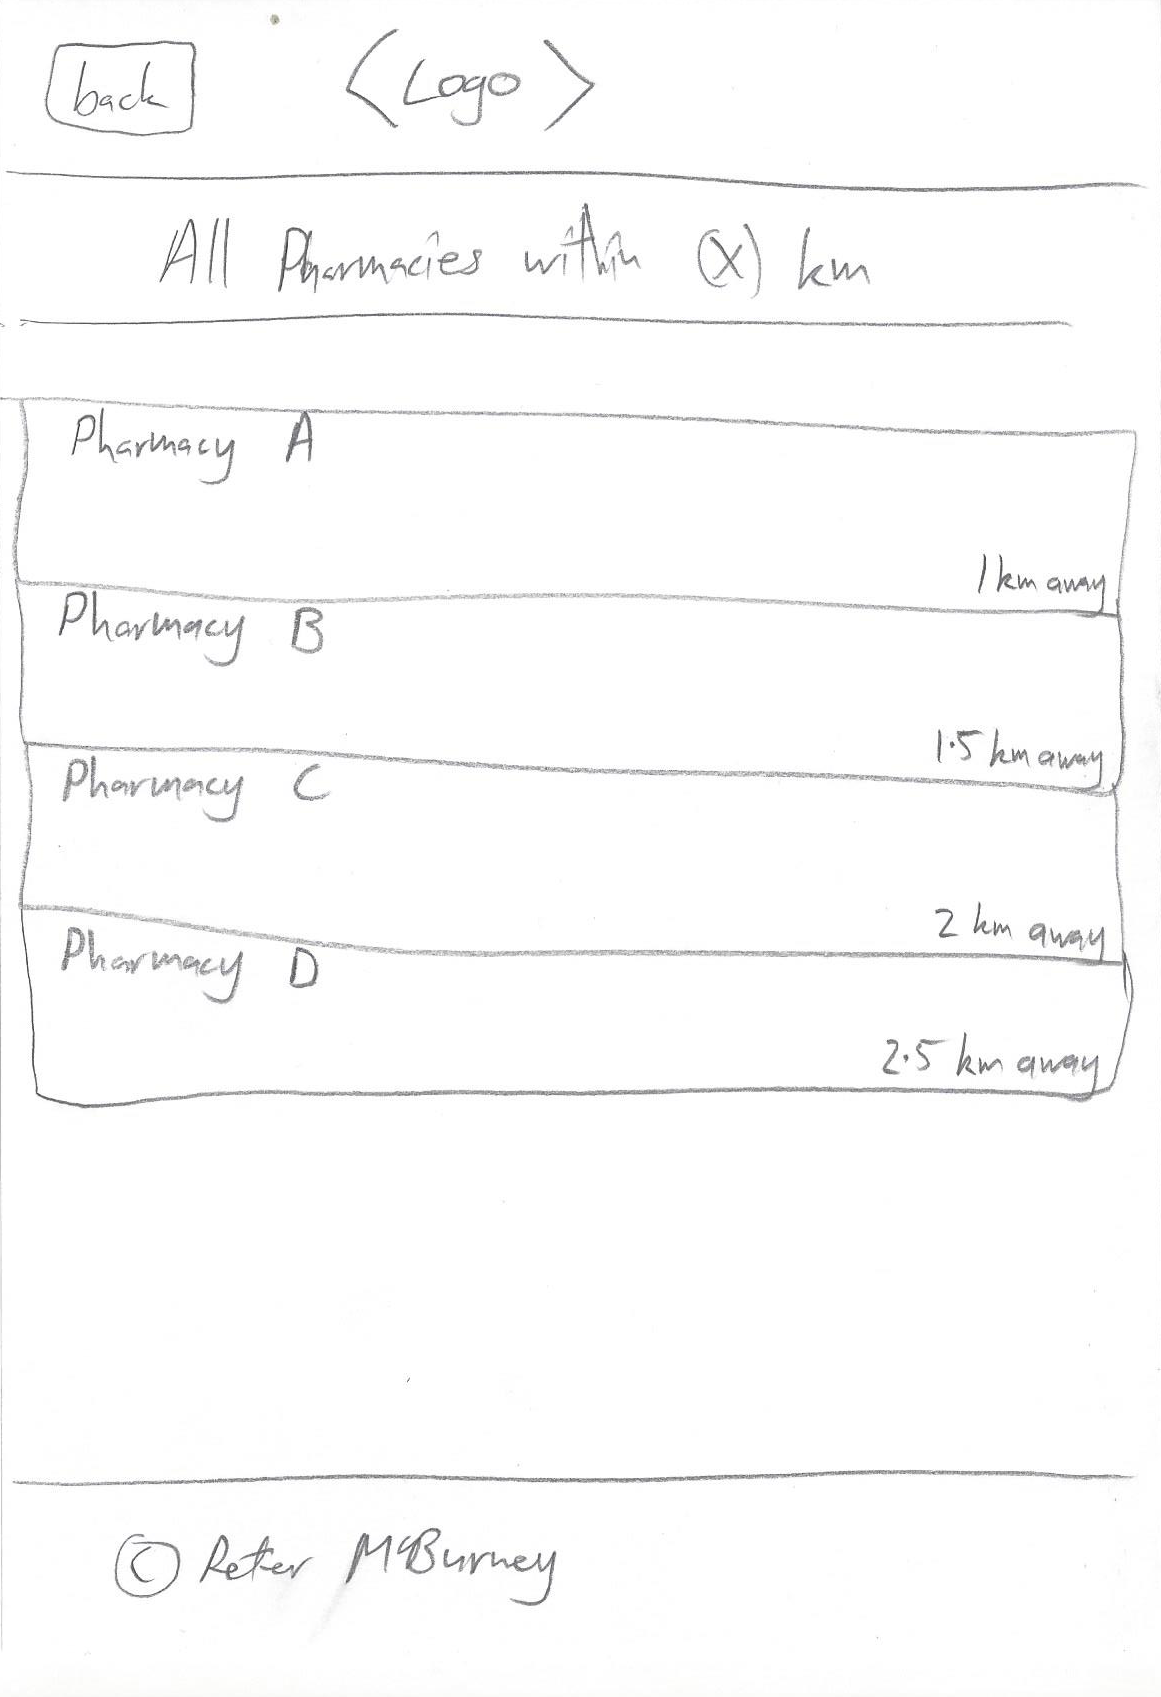 back <Logo>
All Pharmacies within (X) km
Pharmacy A
1 km away
Pharmacy B
1.5 km away
Pharmacy C
2 km away
Pharmacy D
2.5 km away
© Peter McBurney